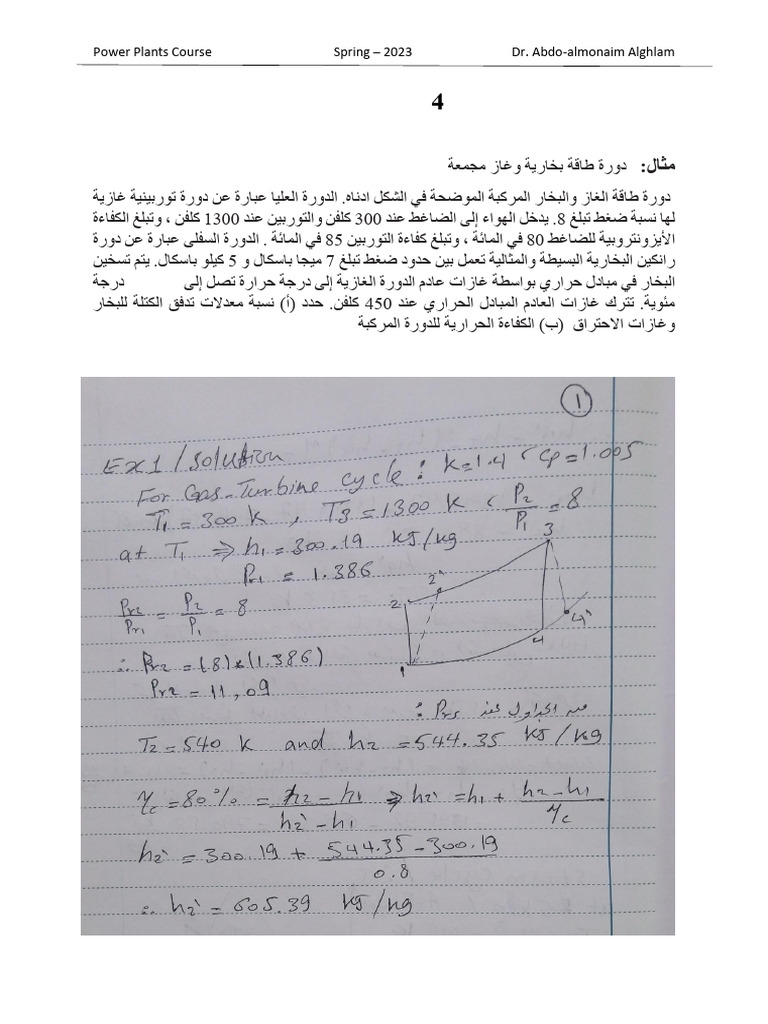 Power Plants Course Spring – 2023 Dr. Abdo-almonaim Alghlam
4
مثال: دورة طاقة بخارية وغاز مجمعة
دورة طاقة الغاز والبخار المركبة الموضحة في الشكل ادناه. الدورة العليا عبارة عن دورة توربينية غازية
لها نسبة ضغط تبلغ 8. يدخل الهواء إلى الضاغط عند 300 كلفن والتوربين عند 1300 كلفن ، وتبلغ الكفاءة
الأيزونتروبية للضاغط 80 في المائة ، وتبلغ كفاءة التوربين 85 في المائة . الدورة السفلى عبارة عن دورة
رانكين البخارية البسيطة والمثالية تعمل بين حدود ضغط تبلغ 7 ميجا باسكال و 5 كيلو باسكال. يتم تسخين
البخار في مبادل حراري بواسطة غازات عادم الدورة الغازية إلى درجة حرارة تصل إلى درجة
مئوية. تترك غازات العادم المبادل الحراري عند 450 كلفن. حدد (أ) نسبة معدلات تدفق الكتلة للبخار
وغازات الاحتراق (ب) الكفاءة الحرارية للدورة المركبة
1
EX1 / Solution
For Gas-Turbine cycle : k=1.4 ، Cp=1.005
T1 = 300 k , T3 = 1300 k ، P2/P1 = 8
at T1 ⇒ h1 = 300.19 kJ/kg
Pr1 = 1.386
Pr2/Pr1 = P2/P1 = 8
∴ Pr2 = (8)*(1.386)
Pr2 = 11,09
1 2 2` 3 4 4`
من الجداول عند Pr2 :
T2 = 540 k and h2 = 544.35 kJ/kg
ηc = 80% = h2 - h1 / h2` - h1 ⇒ h2` = h1 + h2 - h1 / ηc
h2` = 300.19 + 544.35 - 300.19 / 0.8
∴ h2` = 605.39 kJ/kg